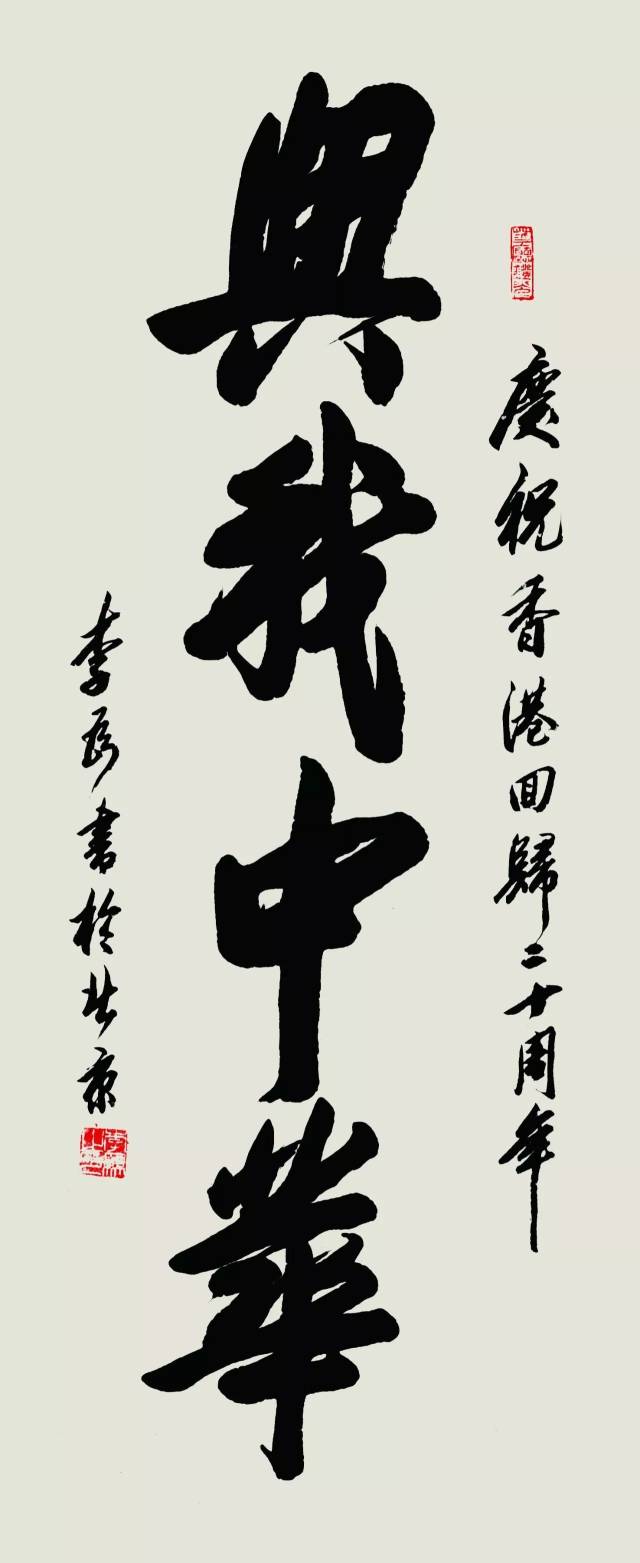 慶祝香港回歸二十周年
興我中華
李 書於北京